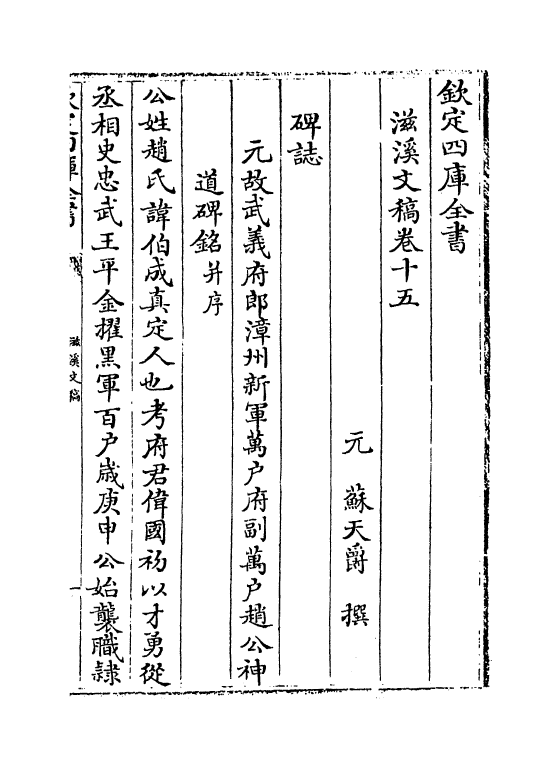 欽定四庫全書
滋溪文稿卷十五
元 蘇天爵 撰
碑誌
元故武義府郎漳州新軍萬戶府副萬戶趙公神
道碑銘并序
公姓趙氏諱伯成真定人也考府君偉國初以才勇從
丞相史忠武王平金擢黑軍百戶歲庚申公始襲職隷
欽定四庫全書
滋溪文稿
一